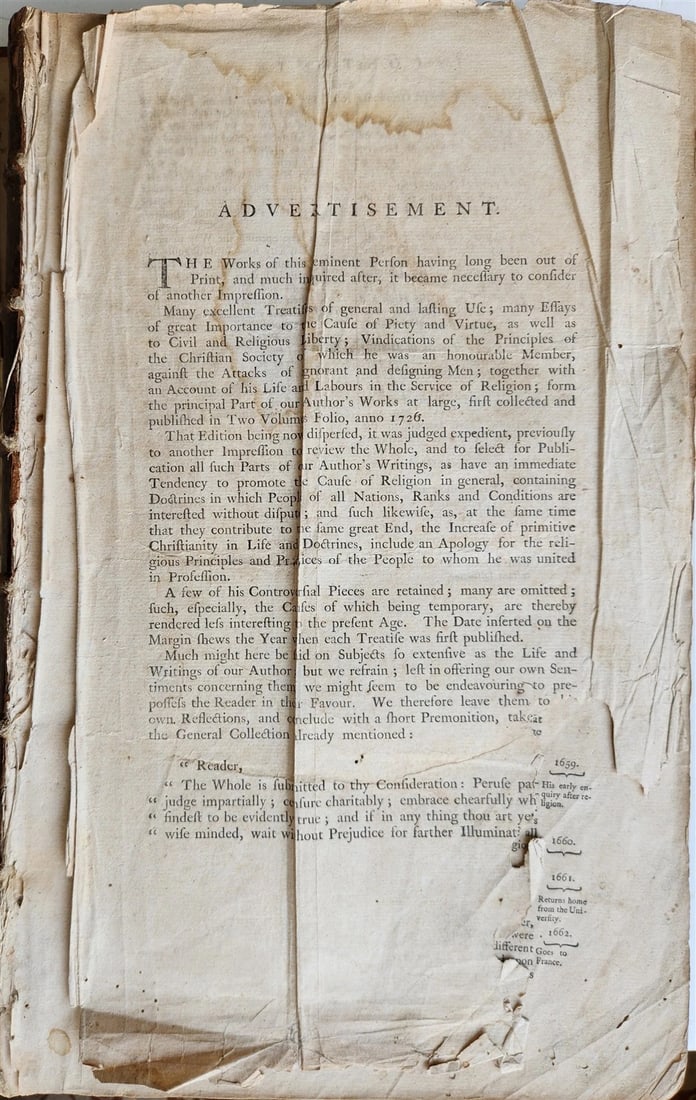 ADVERTISEMENT.
THE Works of this eminent Perſon having long been out of
Print, and much inquired after, it became neceſſary to conſider
of another Impreſſion.
Many excellent Treatiſes of general and laſting Uſe; many Eſſays
of great Importance to the Cauſe of Piety and Virtue, as well as
to Civil and Religious Liberty; Vindications of the Principles of
the Chriſtian Society of which he was an honourable Member,
againſt the Attacks of ignorant and deſigning Men; together with
an Account of his Life and Labours in the Service of Religion; form
the principal Part of our Author's Works at large, firſt collected and
publiſhed in Two Volumes Folio, anno 1726.
That Edition being now diſperſed, it was judged expedient, previouſly
to another Impreſſion to review the Whole, and to ſelect for Publi-
cation all ſuch Parts of our Author's Writings, as have an immediate
Tendency to promote the Cauſe of Religion in general, containing
Doctrines in which People of all Nations, Ranks and Conditions are
intereſted without diſpute; and ſuch likewiſe, as, at the ſame time
that they contribute to the ſame great End, the Increaſe of primitive
Chriſtianity in Life and Doctrines, include an Apology for the reli-
gious Principles and Practices of the People to whom he was united
in Profeſſion.
A few of his Controverſial Pieces are retained; many are omitted;
ſuch, eſpecially, the Cauſes of which being temporary, are thereby
rendered leſs intereſting to the preſent Age. The Date inſerted on the
Margin ſhews the Year when each Treatiſe was firſt publiſhed.
Much might here be ſaid on Subjects ſo extenſive as the Life and
Writings of our Author, but we refrain; leſt in offering our own Sen-
timents concerning them we might ſeem to be endeavouring to pre-
poſſeſs the Reader in their Favour. We therefore leave them to his
own Reflections, and conclude with a ſhort Premonition,
the General Collection already mentioned:
to
“ Reader,
“ The Whole is ſubmitted to thy Conſideration: Peruſe
“ judge impartially; cenſure charitably; embrace chearfully
“ findeſt to be evidently true; and if in any thing thou art
“ wiſe minded, wait without Prejudice for farther
1659.
His early en-
quiry after re-
ligion.
1660.
1661.
Returns home
from the Uni-
verſity.
were
1662.
different
Goes to
France.